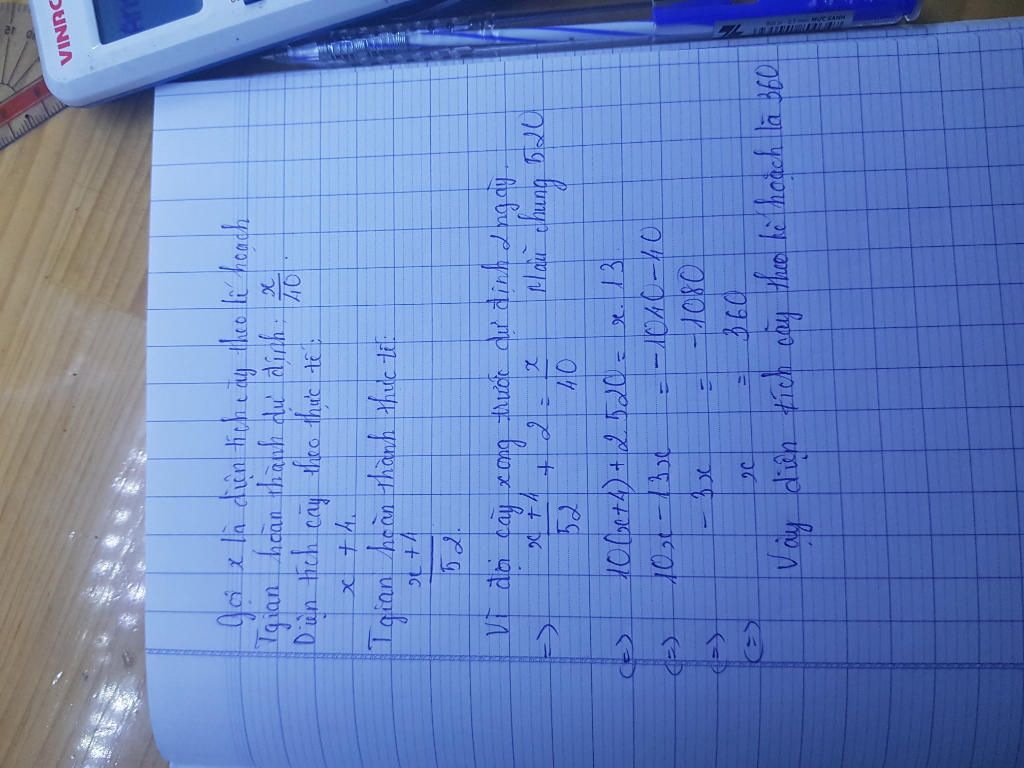 Gọi x là diện tích cày theo kế hoạch
Tgian hoàn thành dự định: x/40.
Diện tích cày theo thực tế:
x + 4.
Tgian hoàn thành thực tế:
x+4/52.
Vì đội cày xong trước dự định 2 ngày.
=> x+4/52 + 2 = x/40 Mẫu chung 520
(=) 10(x+4) + 2.520 = x.13
(=) 10x - 13x = -1040 - 40
(=) - 3x = -1080
(=) x = 360
Vậy diện tích cày theo kế hoạch là 360
VINRC
MỰC XANH